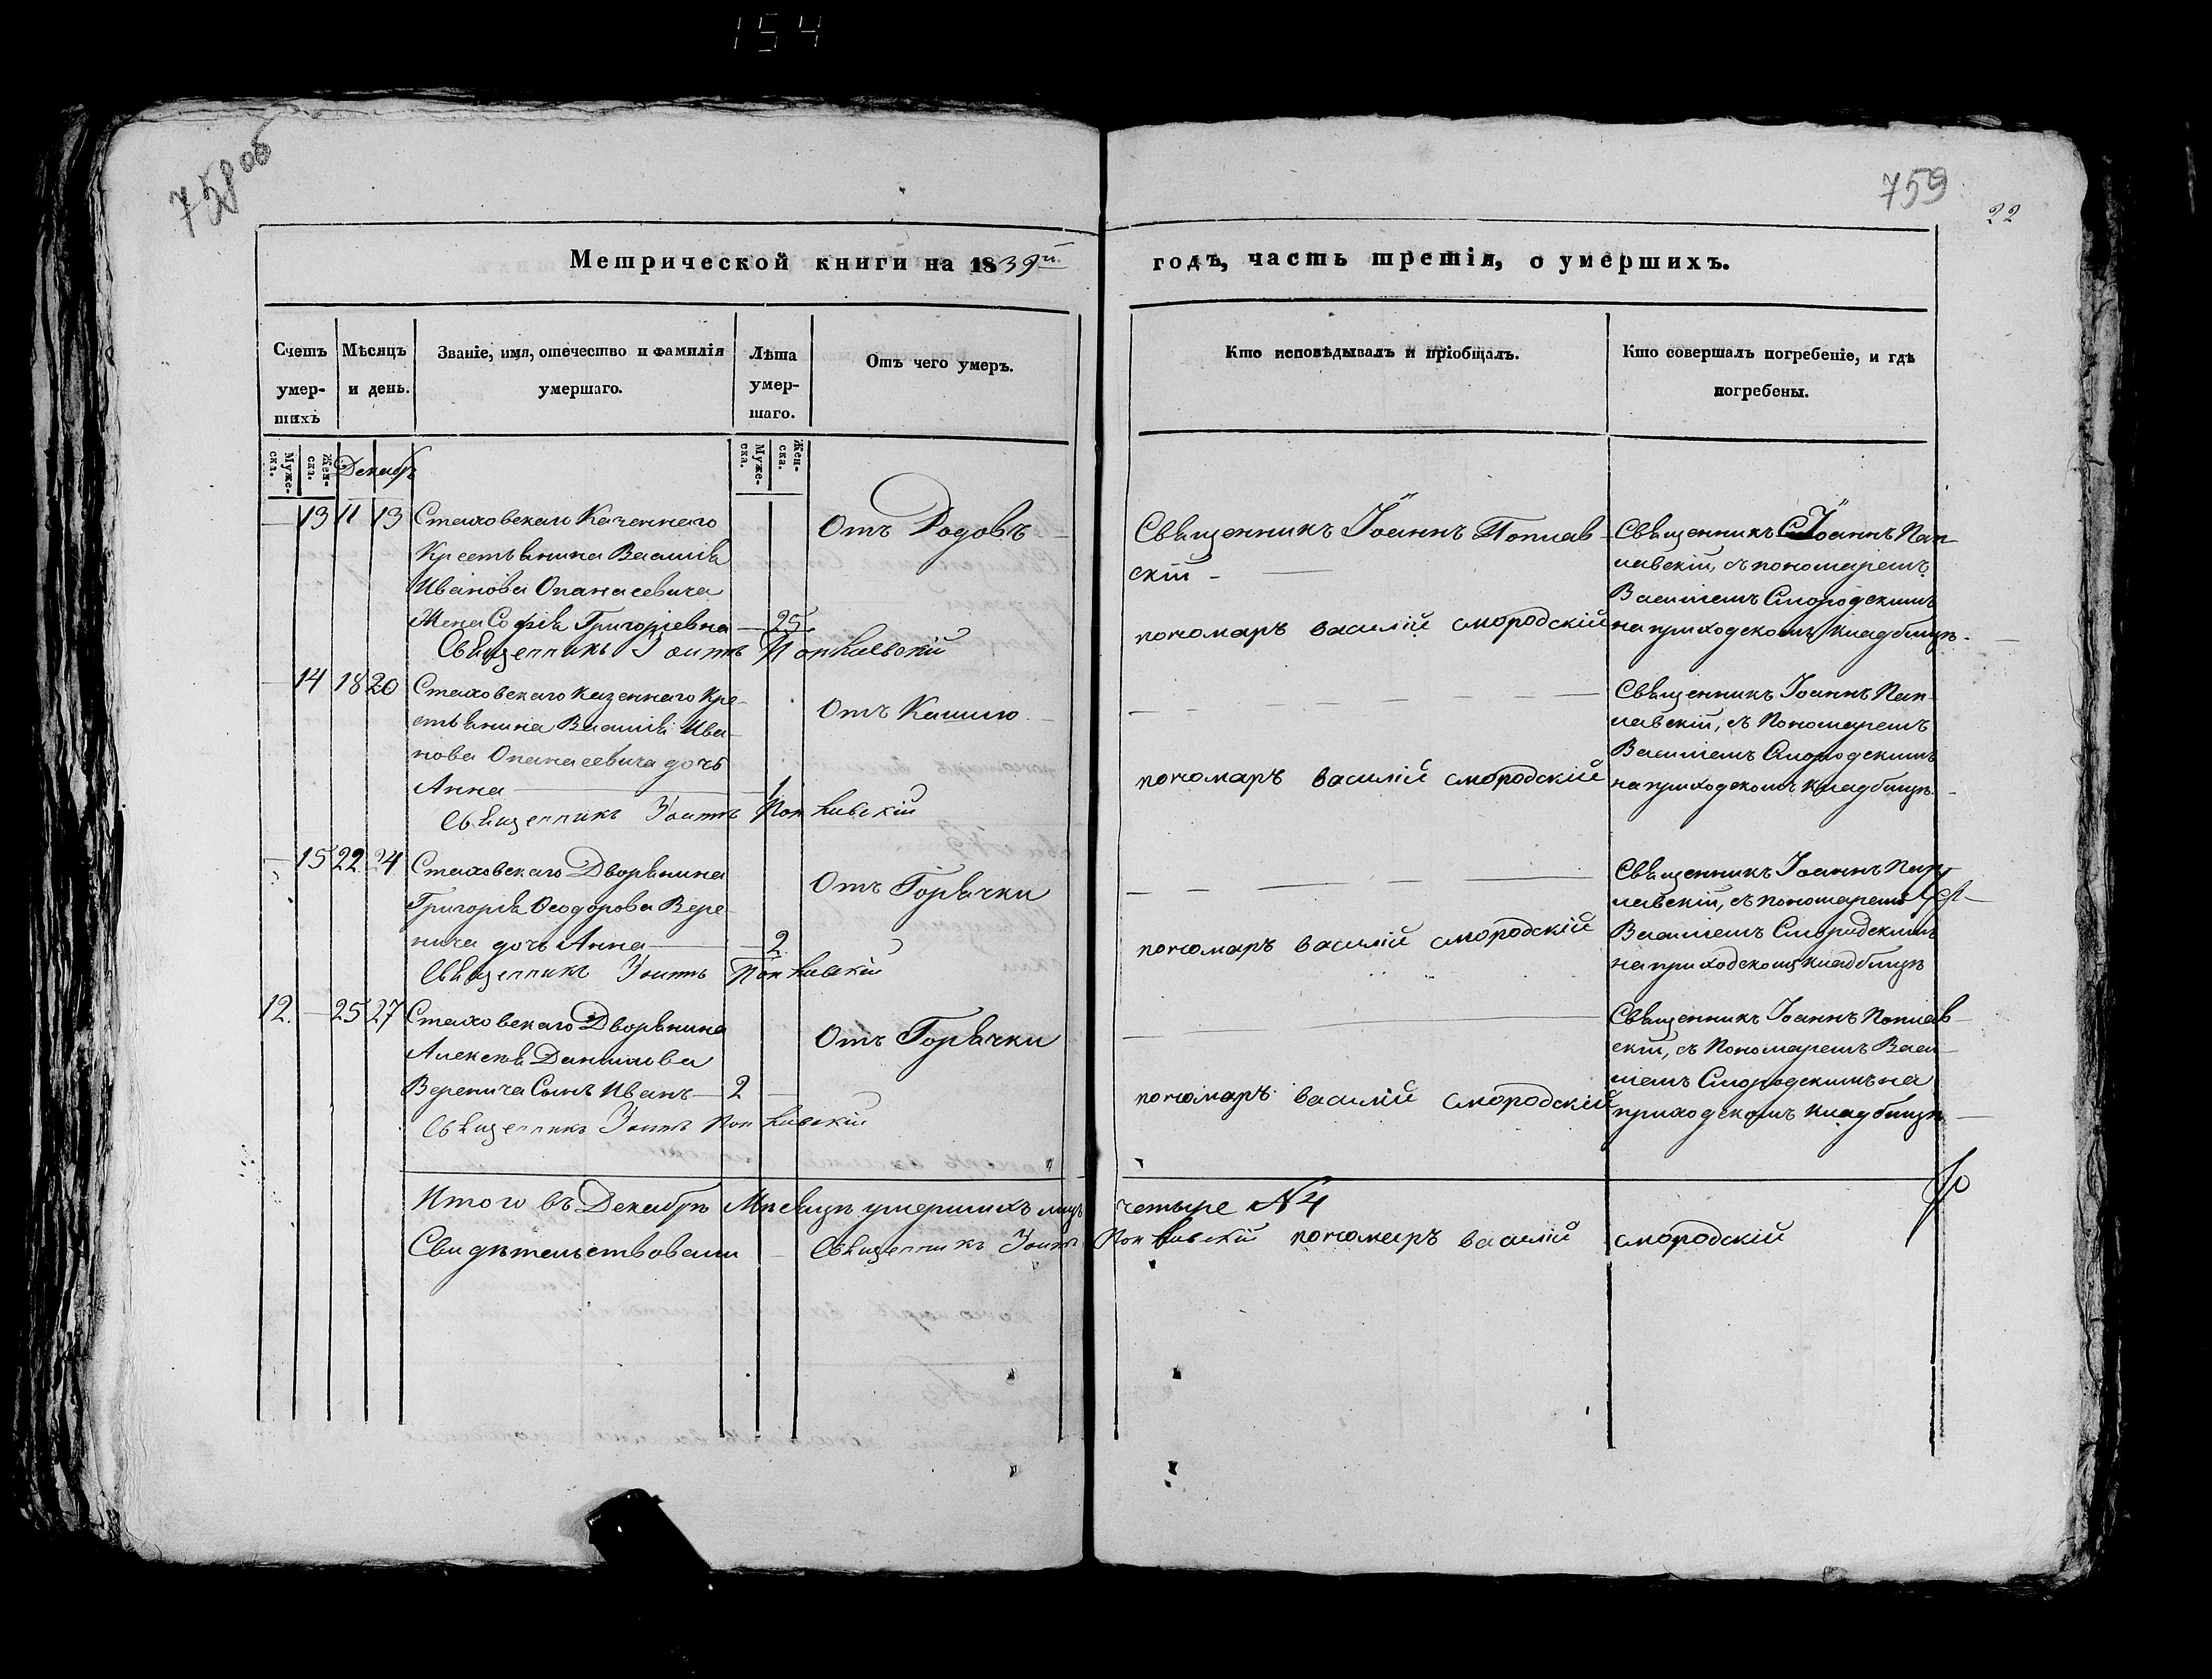 154
758 об
759
22
Метрической книги на 1839й
годъ, часть третія, о умершихъ.
Счетъ умер-
шихъ
Мѣсяцъ
и день.
Званіе, имя, отечество и фамилія
умершаго.
Лѣта
умер-
шаго.
Отъ чего умеръ.
Кто исповѣдывалъ и пріобщалъ.
Кто совершалъ погребеніе, и гдѣ
погребены.
Муже-
ска.
Жен-
ска.
Декабрь
Муже-
ска.
Жен-
ска.
— 13 11 13
Стаховскаго Казеннаго
Крестьянина Василія
Иванова Опанасевича
Жена Софія Григоріевна — 25.
Отъ Родовъ —
Священникъ Іоаннъ Поплавскій
Священникъ Іоаннъ Поплав-
скій —
пономаръ василій смородскій
Священникъ Іоаннъ Поп-
лавскій, съ пономаремъ
Василіемъ Смородскимъ
на приходскомъ кладбищѣ.
— 14 18 20
Стаховскаго казеннаго Кре-
стьянина Василія Ива-
нова Опанасевича дочь
Анна — 1
Отъ Кашлю —
Священникъ Іоаннъ Поплавскій
пономаръ василій смородскій
Священникъ Іоаннъ Поп-
лавскій, съ Пономаремъ
Василіемъ Смородскимъ
на приходскомъ кладбищѣ.
— 15 22 24
Стаховскаго Дворянина
Григорія Ѳеодорова Вере-
нича дочь Анна — 2
Отъ Горячки
Священникъ Іоаннъ Поплавскій
пономаръ василій смородскій
Священникъ Іоаннъ Поп-
лавскій, съ пономаремъ
Василіемъ Смородскимъ
на приходскомъ кладбищѣ
12. — 25 27
Стаховскаго Дворянина
Алексѣя Данилова
Веренича Сынъ Иванъ — 2 —
Отъ Горячки
Священникъ Іоаннъ Поплавскій
пономаръ василій смородскій
Священникъ Іоаннъ Поплав-
скій, съ Пономаремъ Васи-
ліемъ Смородскимъ на
приходскомъ кладбищѣ —
Итого въ Декабрѣ Мѣсяцѣ умершихъ лицъ четыре № 4
Свидѣтельствовали — Священникъ Іоаннъ Поплавскій пономаръ василій смородскій